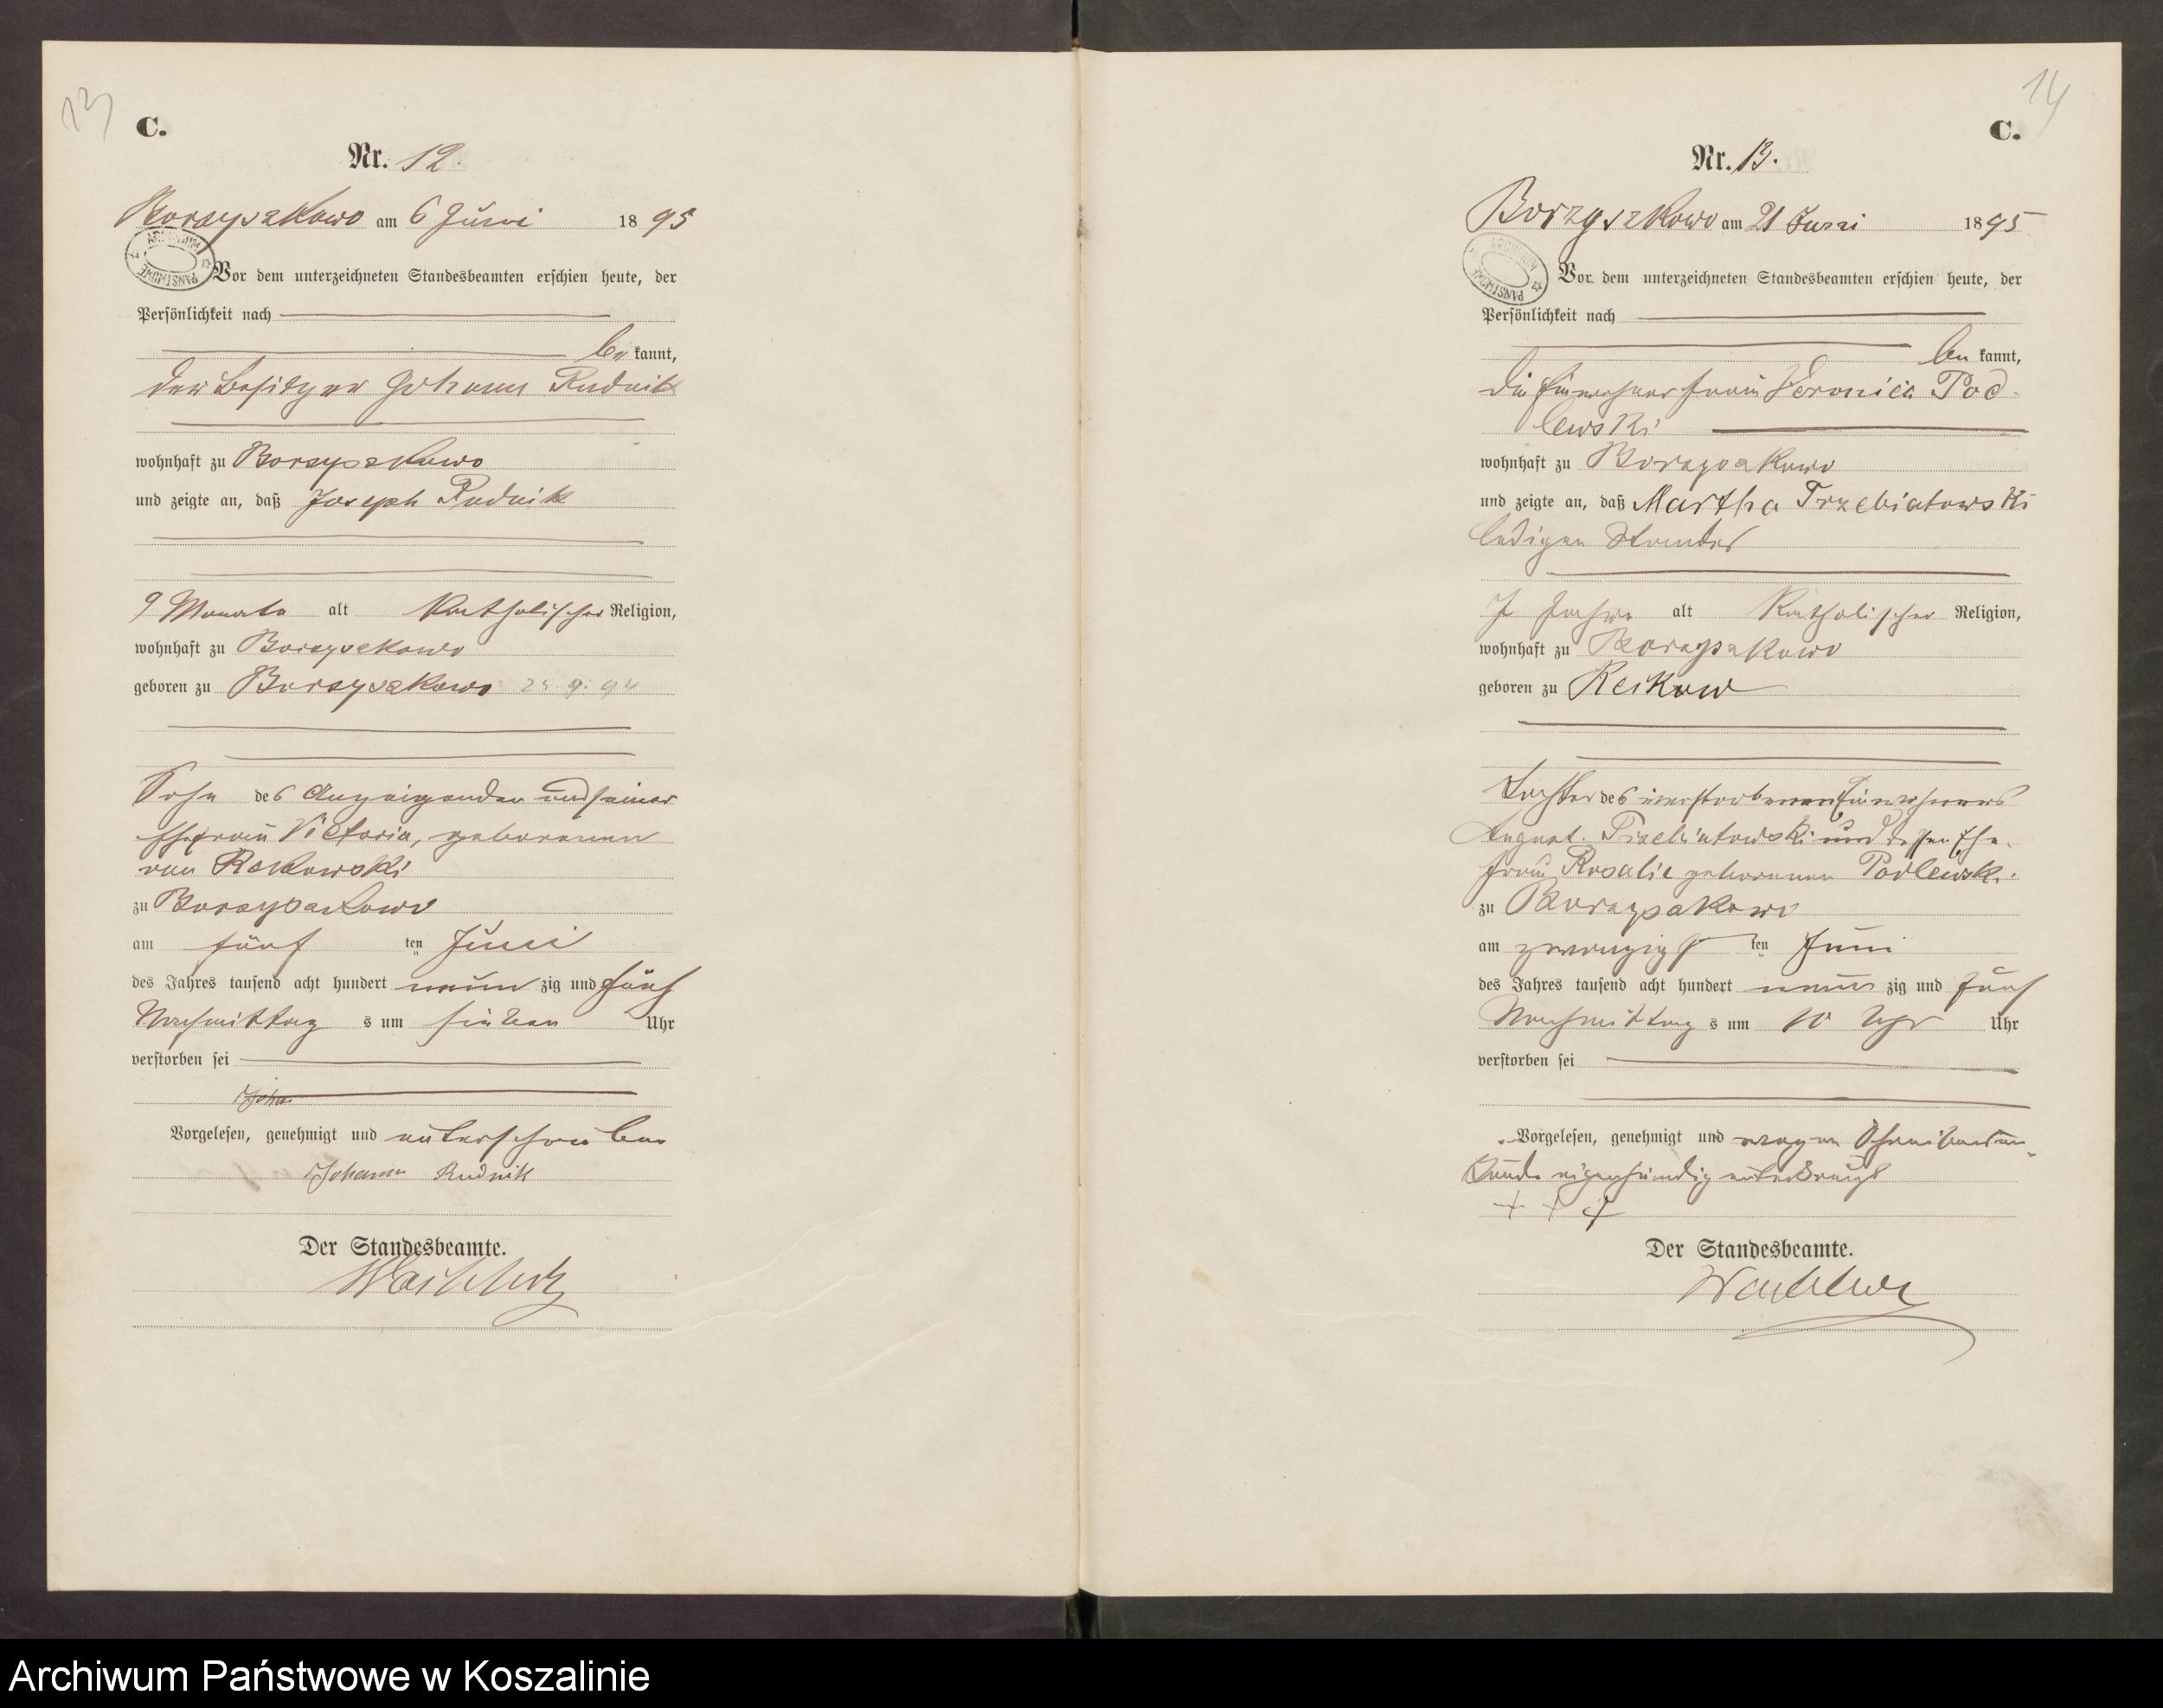 13
C.
Nr. 12.
Borzyszkowo am 6 Juni 1895
ARCHIWUM PAŃSTWOWE
Vor dem unterzeichneten Standesbeamten erschien heute, der
Persönlichkeit nach
be kannt,
der Besitzer Johann Rudnik
wohnhaft zu Borzyszkowo
und zeigte an, daß Joseph Rudnik
9 Monate alt katholischer Religion,
wohnhaft zu Borzyszkowo
geboren zu Borzyszkowo 25.9.94
Sohn des Anzeigenden und seiner
Ehefrau Victoria, geborenen
von Rekowski
zu Borzyszkowo
am fünf ten Juni
des Jahres tausend acht hundert neun zig und fünf
Nachmittag s um sieben Uhr
verstorben sei
Joha
Vorgelesen, genehmigt und unterschrieben
Johann Rudnik
Der Standesbeamte.
14
C.
Nr. 13.
Borzyszkowo am 21 Juni 1895
ARCHIWUM PAŃSTWOWE
Vor dem unterzeichneten Standesbeamten erschien heute, der
Persönlichkeit nach
be kannt,
die Einwohnerfrau Veronica Pod-
lewski
wohnhaft zu Borzyszkowo
und zeigte an, daß Martha Trzebiatowski
ledigen Standes
7 Jahre alt katholischer Religion,
wohnhaft zu Borzyszkowo
geboren zu Reikow
Tochter des verstorbenen Einwohners
August Trzebiatowski und dessen Ehe-
frau Rosalie geborenen Podlewski
zu Borzyszkowo
am zwanzigst ten Juni
des Jahres tausend acht hundert neun zig und fünf
Nachmittag s um 10 Uhr Uhr
verstorben sei
Vorgelesen, genehmigt und wegen Schreibensun-
kunde eigenhändig unterkreuzt
+ + +
Der Standesbeamte.
Archiwum Państwowe w Koszalinie